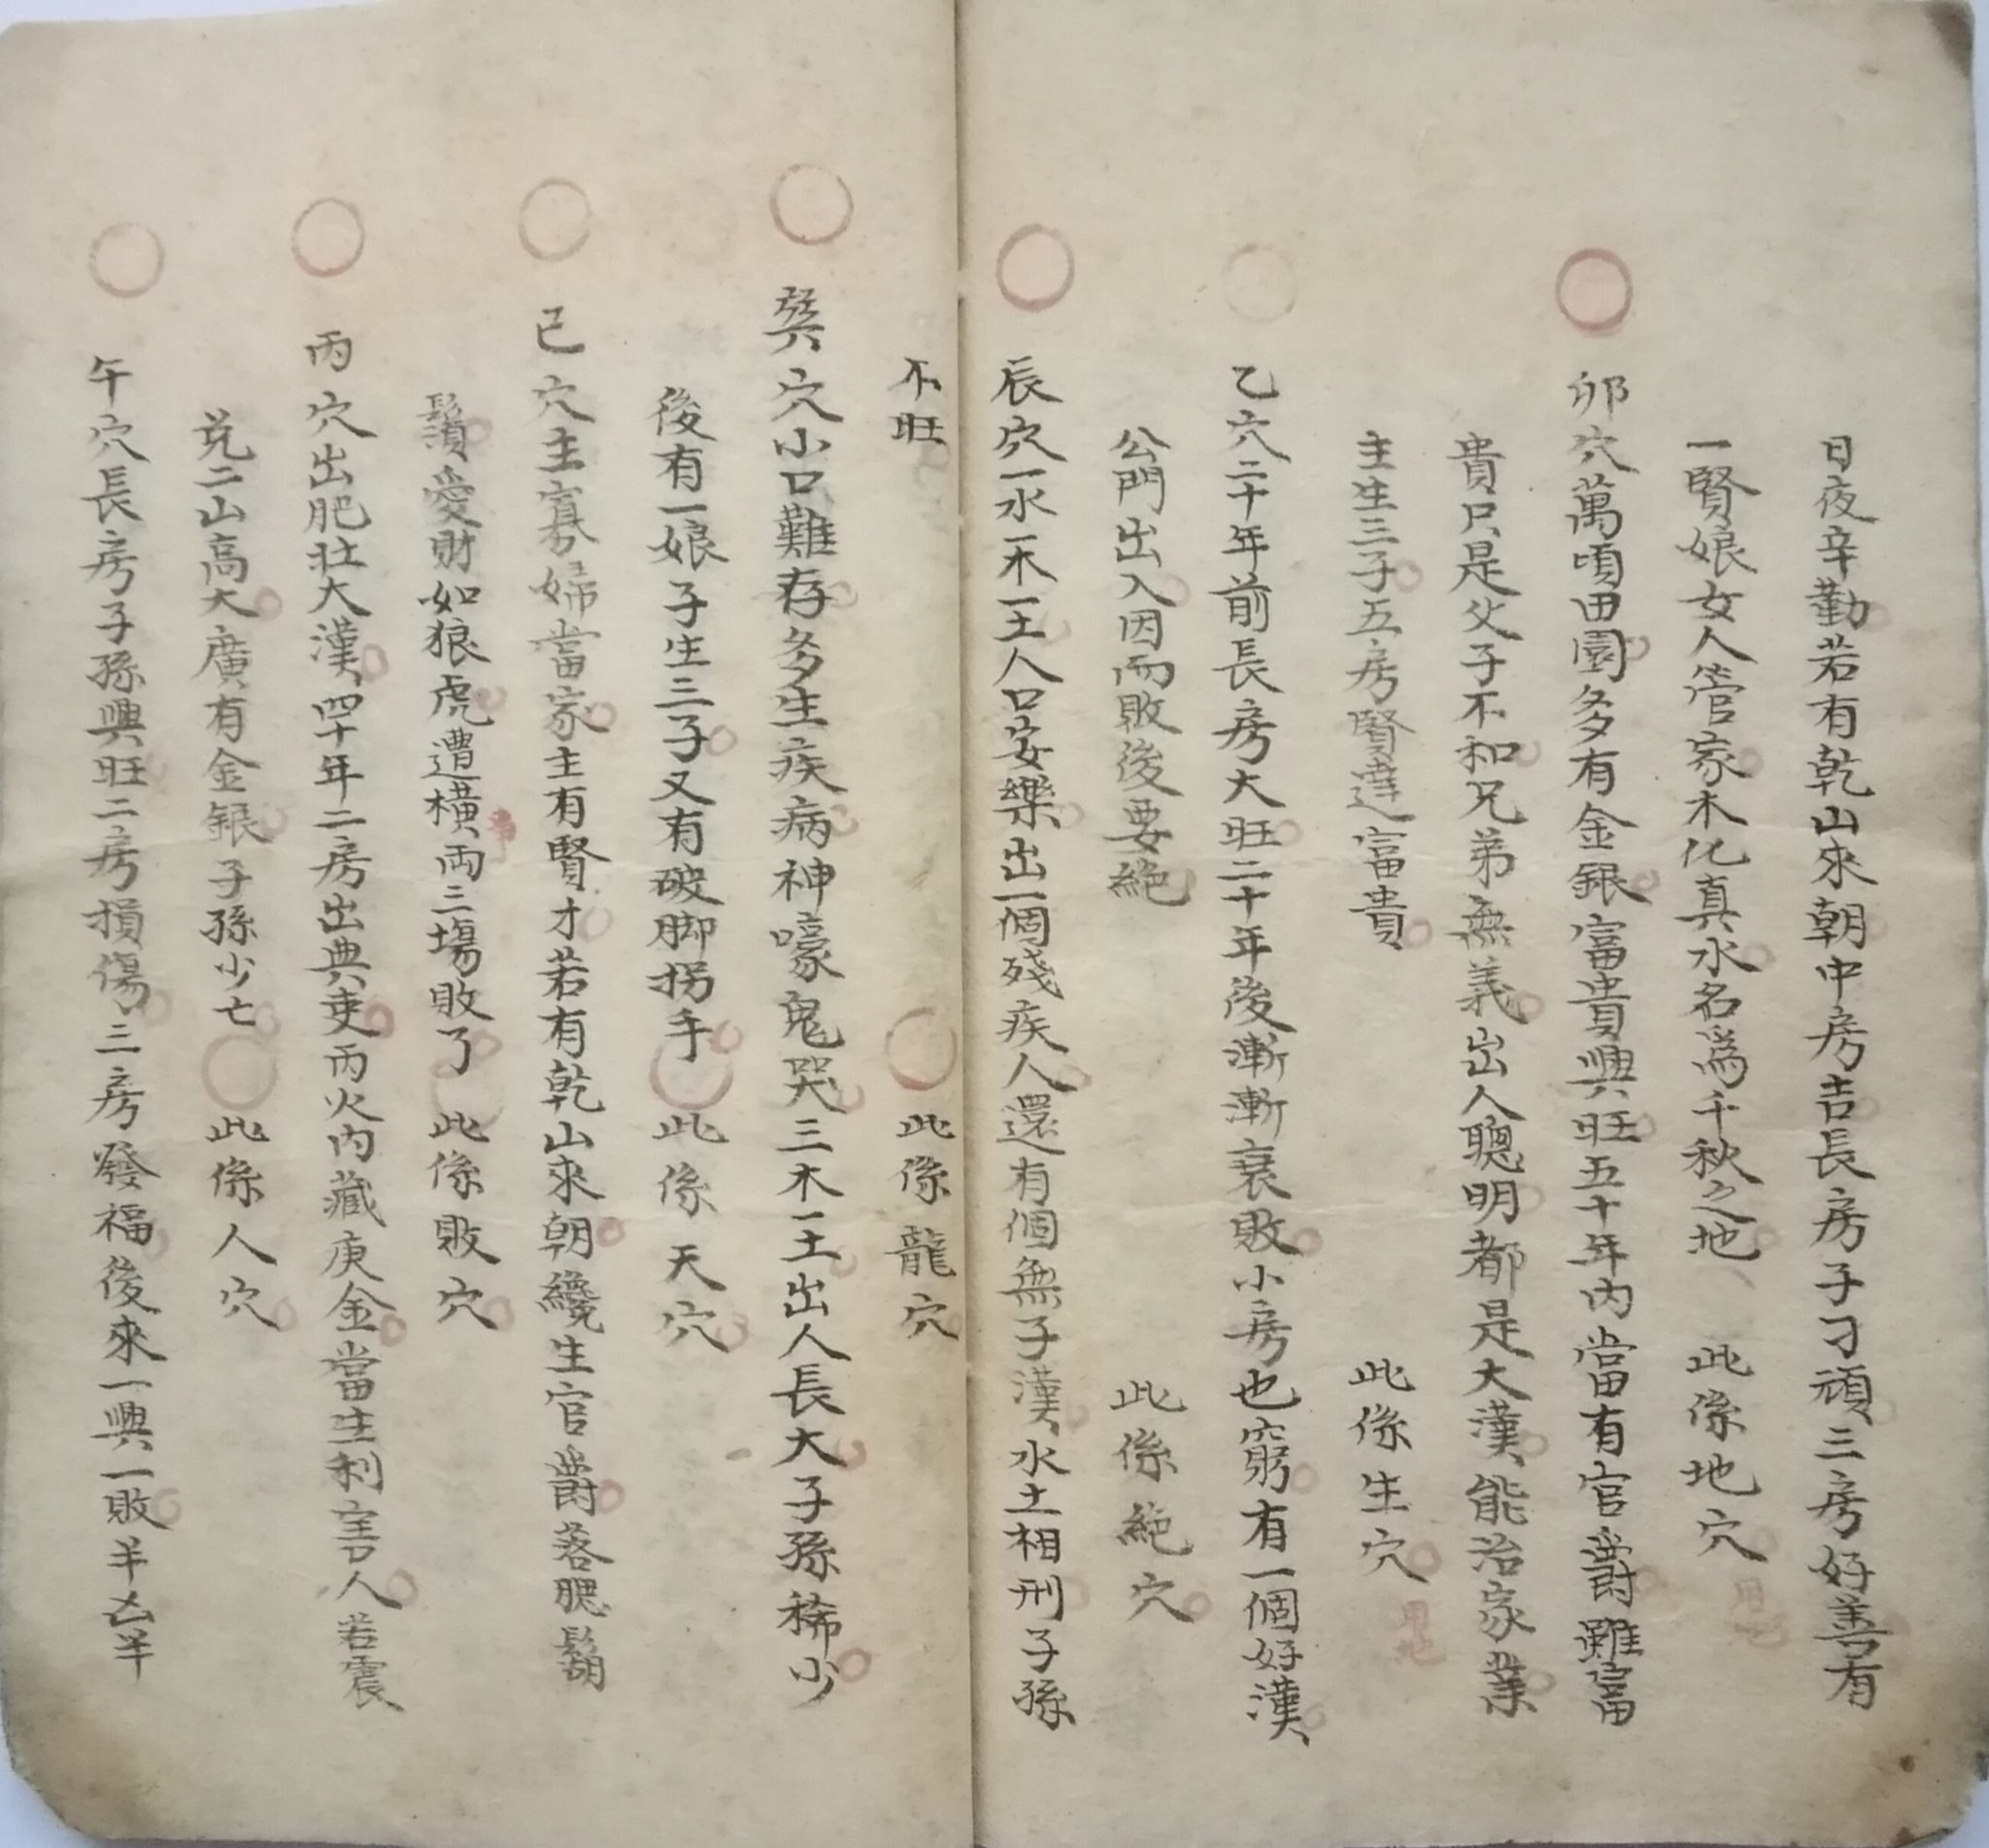 日夜辛勤若有乾山來朝中房吉長房子刁頑三房好善有
一賢娘女人管家木化真水名為千秋之地 此係地穴
卯穴萬頃田園多有金銀富貴興旺五十年內當有官爵雖富
貴只是父子不和兄弟無義出人聰明都是大漢能治家業
主生三子五房賢達富貴 此係生穴
乙穴二十年前長房大旺二十年後漸漸衰敗小房也窮有一個好漢
公門出入因而敗後要絕 此係絕穴
辰穴一水一木一土人口安樂出一個殘疾人還有個無子漢水土相刑子孫
不旺 此係龍穴
巽穴小口難存多生疾病神嚎鬼哭三木一土出人長大子孫稀少
後有一娘子生三子又有破脚拐手 此係天穴
己穴主寡婦當家主有賢才若有乾山來朝纔生官爵落腮鬍
鬚愛財如狼虎遭橫両三塲敗了 此係敗穴
丙穴出肥壯大漢四十年二房出典吏丙火內藏庚金當生利害人若震
兑二山高大廣有金銀子孫少亡 此係人穴
午穴長房子孫興旺二房損傷三房發福後來一興一敗半凶半